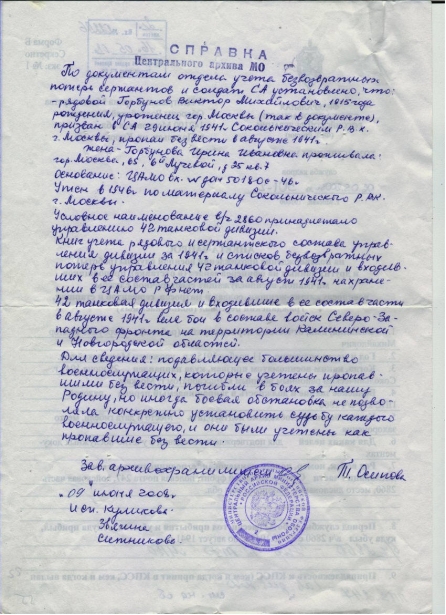 СПРАВКА
Центрального архива МО
По документам отдела учета безвозвратных
потерь сержантов и солдат СА установлено, что:
- рядовой Горбунов Виктор Михайлович, 1915 года
рождения, уроженец гор. Москвы (так в документе),
призван в СА 29 июня 1941. Сокольническим Р.В.К.
г. Москвы, пропал без вести в августе 1941г.
жена - Горбунова Ирина Ивановна проживала:
гор. Москва, 65, 6й Лучевой, д 25 кв. 7
Основание: ЦАМО вх. № дон 50180с-46г.
Учтен в 1946г по материалу Сокольнического РВК
г. Москвы.
Условное наименование в/ч 2860 принадлежало
управлению 42 танковой дивизии.
Книг учета рядового и сержантского состава управ-
ления дивизии за 1941г и списков безвозвратных
потерь управления 42 танковой дивизии и входив-
ших в ее состав частей за август 1941г на хране-
нии в ЦАМО РФ нет.
42 танковая дивизия и входившие в ее состав части
в августе 1941г вели бои в составе войск Северо-За-
падного фронта на территории Калининской
и Новгородской областей.
Для сведения: подавляющее большинство
военнослужащих, которые учтены пропав-
шими без вести, погибли в боях за нашу
Родину, но иногда боевая обстановка не позво-
ляла конкретно установить судьбу каждого
военнослужащего, и они были учтены как
пропавшие без вести.
Зав. архивохранилищем Т. Осипова
"09" июня 2008г.
Исп. Куликова
Звягина
Ситникова